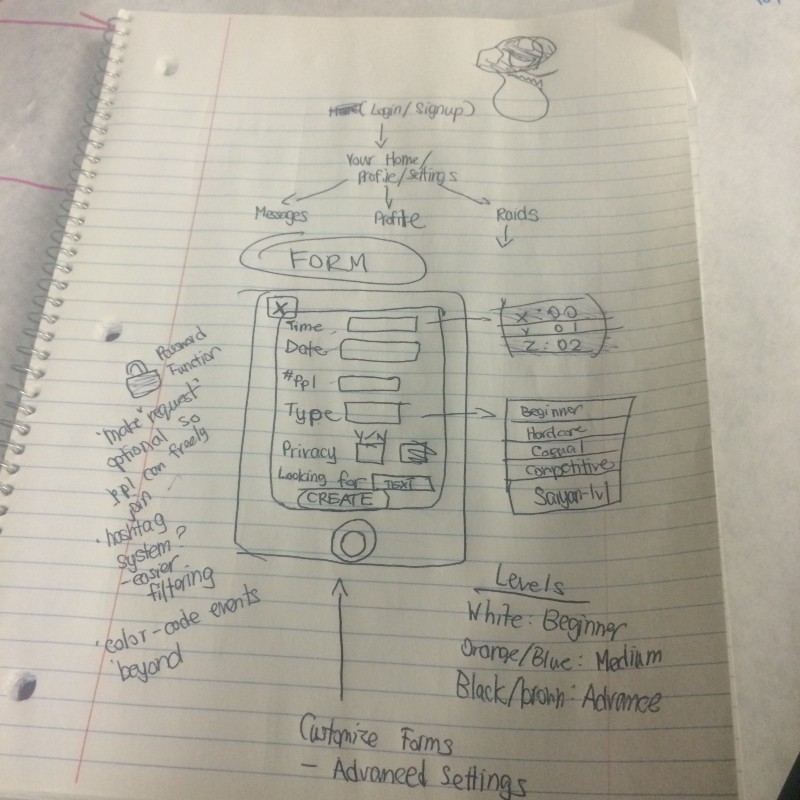 (Login/Signup)
Your Home/
Profile/Settings
Messages
Profile
Raids
FORM
X
Time
Date
#ppl
Type
Y/N
Privacy
Looking for TEXT
CREATE
X : 00
Y 01
Z : 02
Beginner
Hardcore
Casual
Competitive
Saiyan-lvl
Password
Function
"make "request"
optional so
ppl can freely
join
• hashtag
system?
- easier
filtering
• color-code events
beyond
Levels
White: Beginner
Orange/Blue: Medium
Black/brown: Advance
Customize Forms
- Advanced Settings